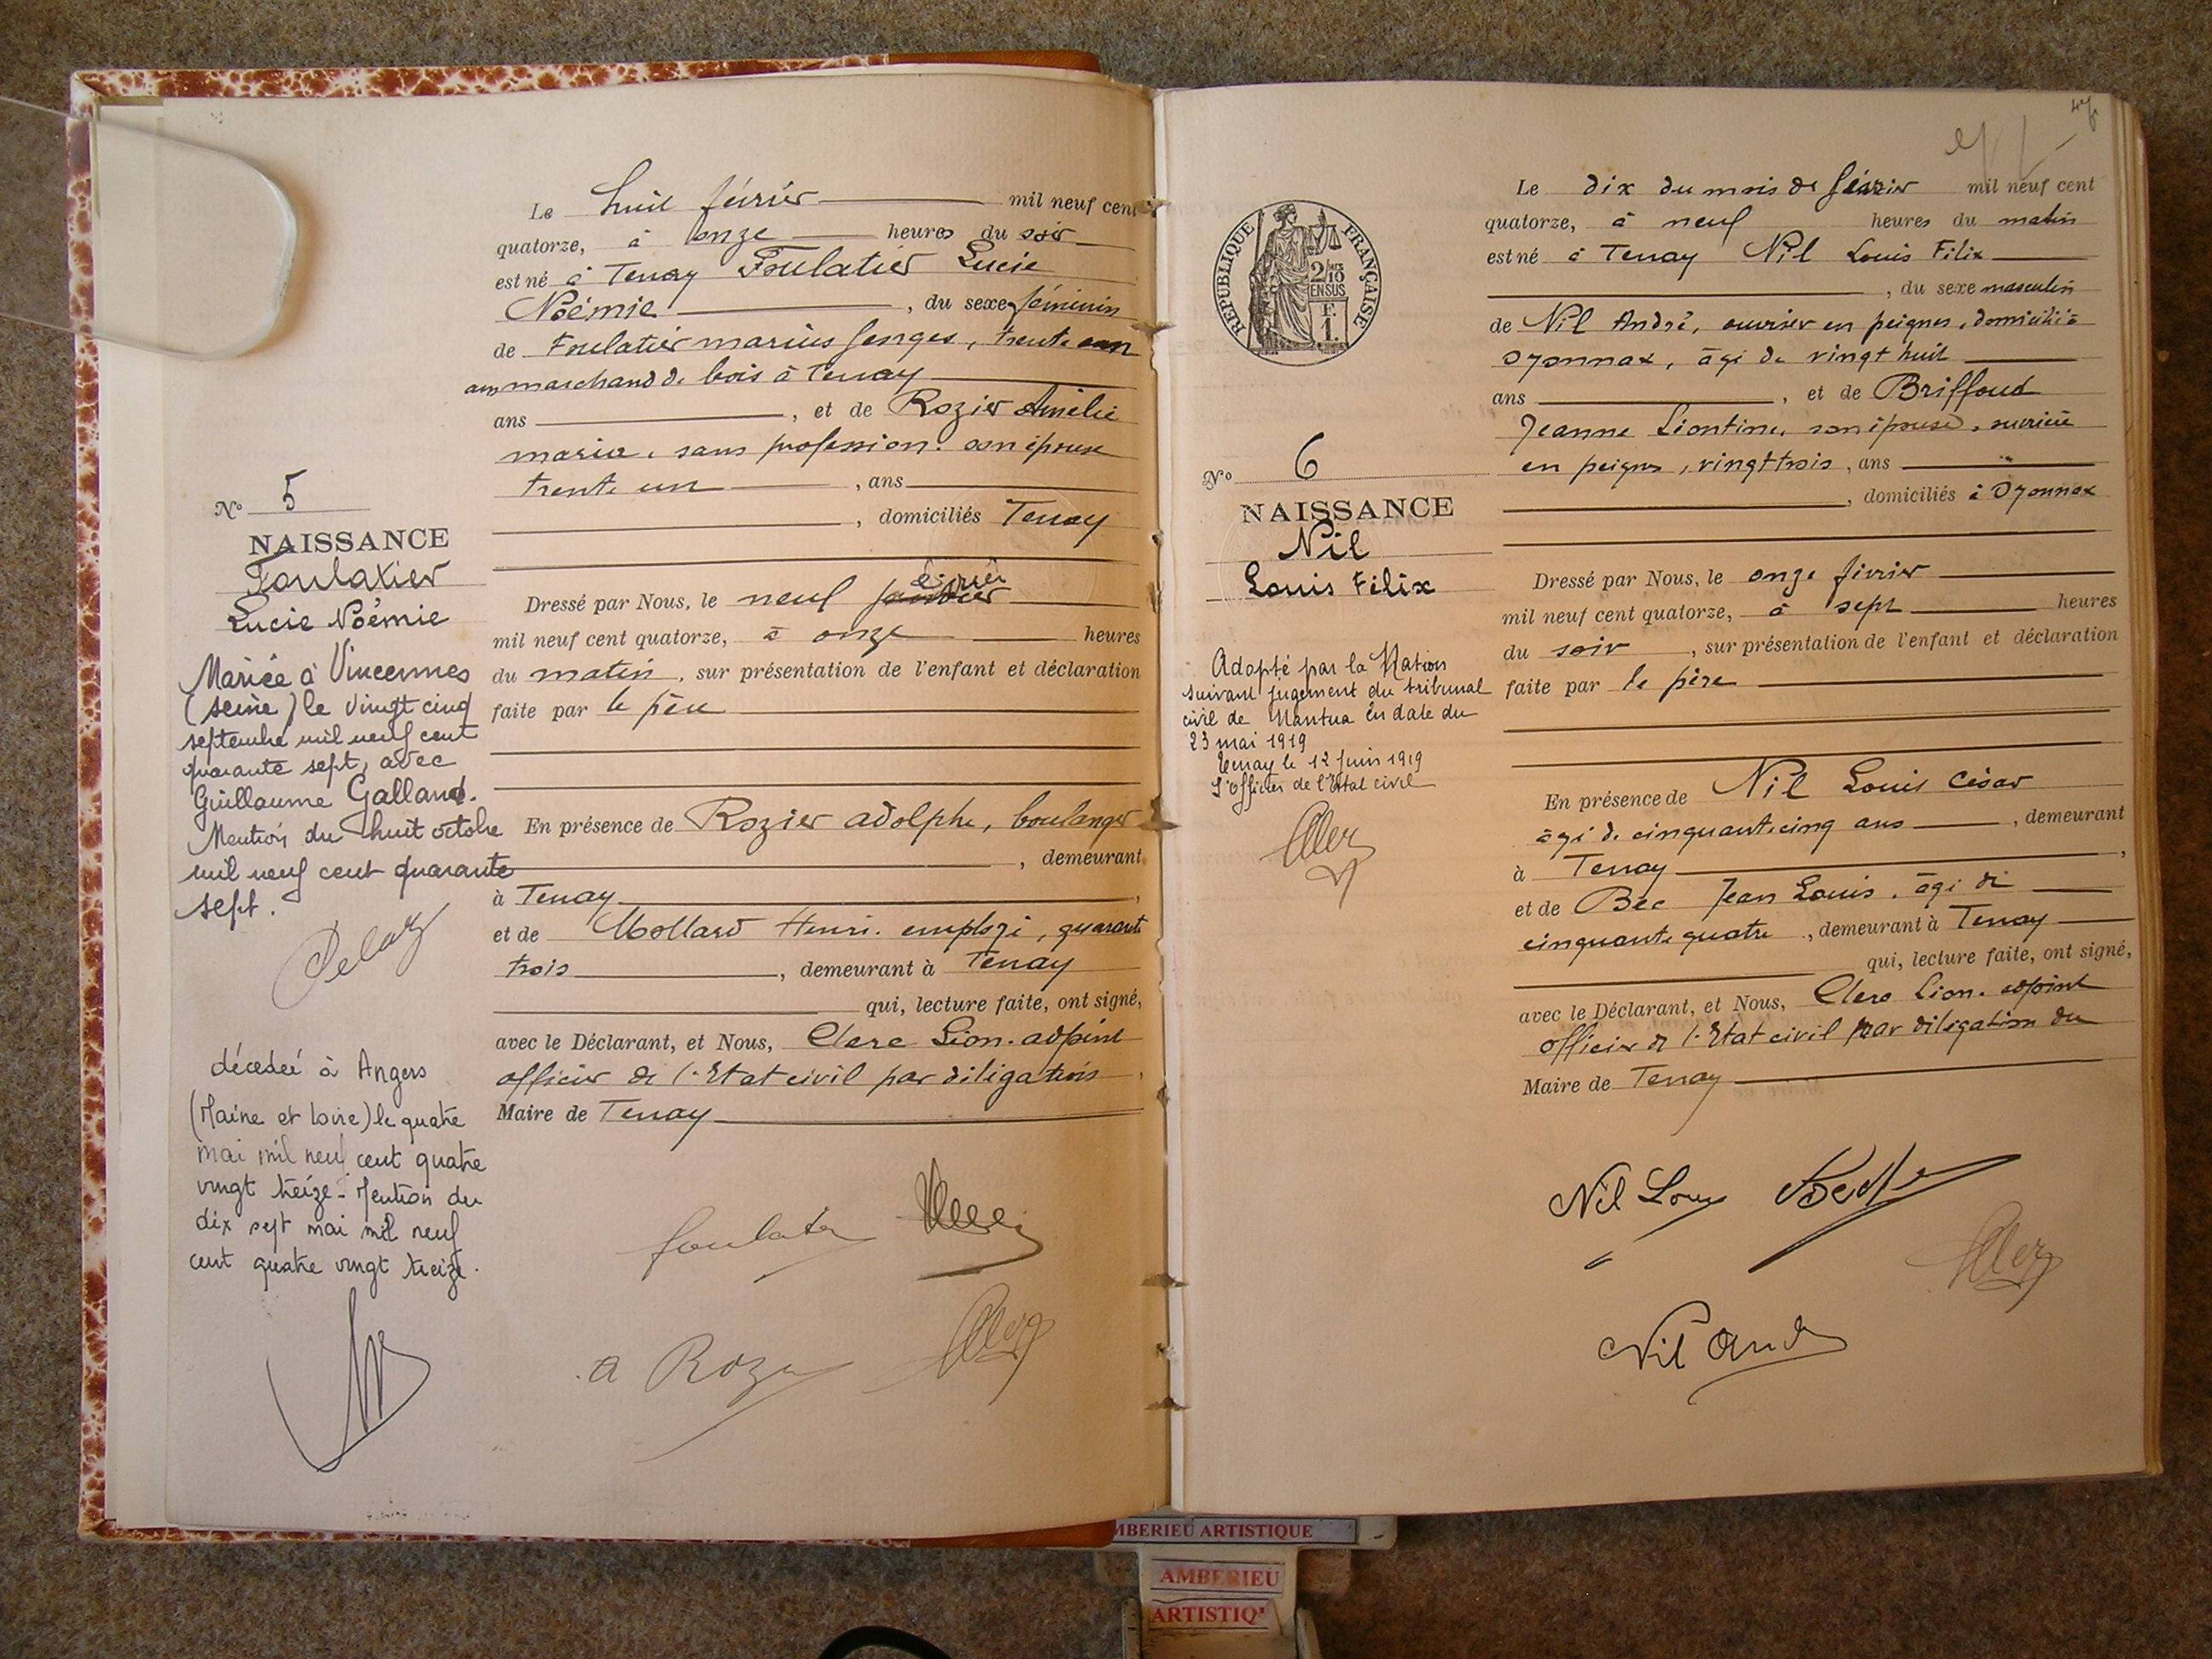 Le huit février mil neuf cent
quatorze, à onze heures du soir
est né à Tenay Foulatier Lucie
Noémie, du sexe féminin
de Foulatier marius Georges, trente
ans marchand de bois à Tenay
ans, et de Rozier Amélie
maria, sans profession. son épouse
trente un, ans
, domiciliés Tenay
Dressé par Nous, le neuf février
mil neuf cent quatorze, à onze heures
du matin, sur présentation de l'enfant et déclaration
faite par le père
En présence de Rozier adolphe, boulanger
, demeurant
à Tenay,
et de Mollard Henri. employé, quarante
trois, demeurant à Tenay
qui, lecture faite, ont signé,
avec le Déclarant, et Nous, Clerc Léon. adjoint
officier de l'Etat civil par délégation
Maire de Tenay
foulatier
A Rozier
No 5
NAISSANCE
Foulatier
Lucie Noémie
Mariée à Vincennes
(seine) le vingt cinq
septembre mil neuf cent
quarante sept, avec
Guillaume Galland.
Mention du huit octobre
mil neuf cent quarante
sept.
décédée à Angers
(Maine et Loire) le quatre
mai mil neuf cent quatre
vingt treize. Mention du
dix sept mai mil neuf
cent quatre vingt treize.
RÉPUBLIQUE FRANÇAISE
2/10
EN SUS
F.
1.
No 6
NAISSANCE
Nil
Louis Félix
Adopté par la Nation
suivant jugement du tribunal
civil de Nantua en date du
23 mai 1919
Tenay le 12 Juin 1919
L'Officier de l'Etat civil
Le dix du mois de février mil neuf cent
quatorze, à neuf heures du matin
est né à Tenay Nil Louis Félix
, du sexe masculin
de Nil André, ouvrier en peignes, domicilié à
Oyonnax, âgé de vingt huit
ans, et de Briffoud
Jeanne Léontine, son épouse, ouvrière
en peignes, vingt trois, ans
, domiciliés à Oyonnax
Dressé par Nous, le onze février
mil neuf cent quatorze, à sept heures
du soir, sur présentation de l'enfant et déclaration
faite par le père
En présence de Nil Louis César
âgé de cinquante cinq ans, demeurant
à Tenay,
et de Bec Jean Louis. âgé de
cinquante quatre, demeurant à Tenay
qui, lecture faite, ont signé,
avec le Déclarant, et Nous, Clerc Léon. adjoint
officier de l'Etat civil par délégation du
Maire de Tenay
Nil Louis
Nil André
AMBERIEU ARTISTIQUE
AMBERIEU
ARTISTIQ